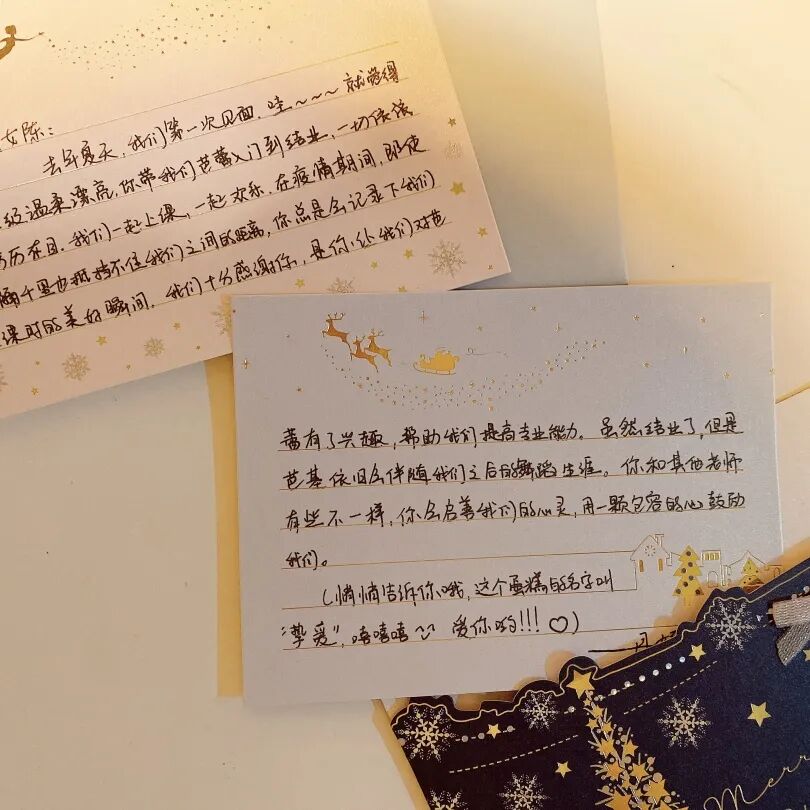 女陈：
去年夏天，我们第一次见面，哇~~~就觉得
级温柔漂亮，你带我们芭蕾入门到结业，一切依该
历历在目。我们一起上课，一起欢乐，在疫情期间，即使
隔千里也抵挡不住我们之间的距离，你总是会记录下我们
课时的美好瞬间。我们十分感谢你，是你让我们对芭
蕾有了兴趣，帮助我们提高专业能力。虽然结业了，但是
芭基依旧会伴随我们之后的舞蹈生涯。你和其他老师
有些不一样，你会启善我们的心灵，用一颗包容的心鼓励
我们。
（悄悄告诉你哦，这个蛋糕的名字叫
“挚爱”，嘻嘻嘻~ 爱你哟!!! ♡）
Merr